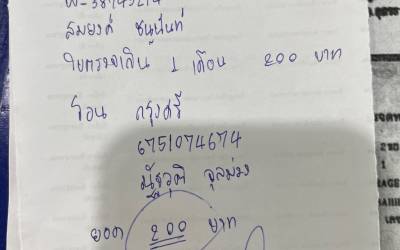 สมยงค์ ชนะนันท์
ใบตรวจเส้น 1 เดือน 200 บาท
โอน กรุงศรี
6751074674
ณัฐวุฒิ จุลม่วง
ยอด 200 บาท